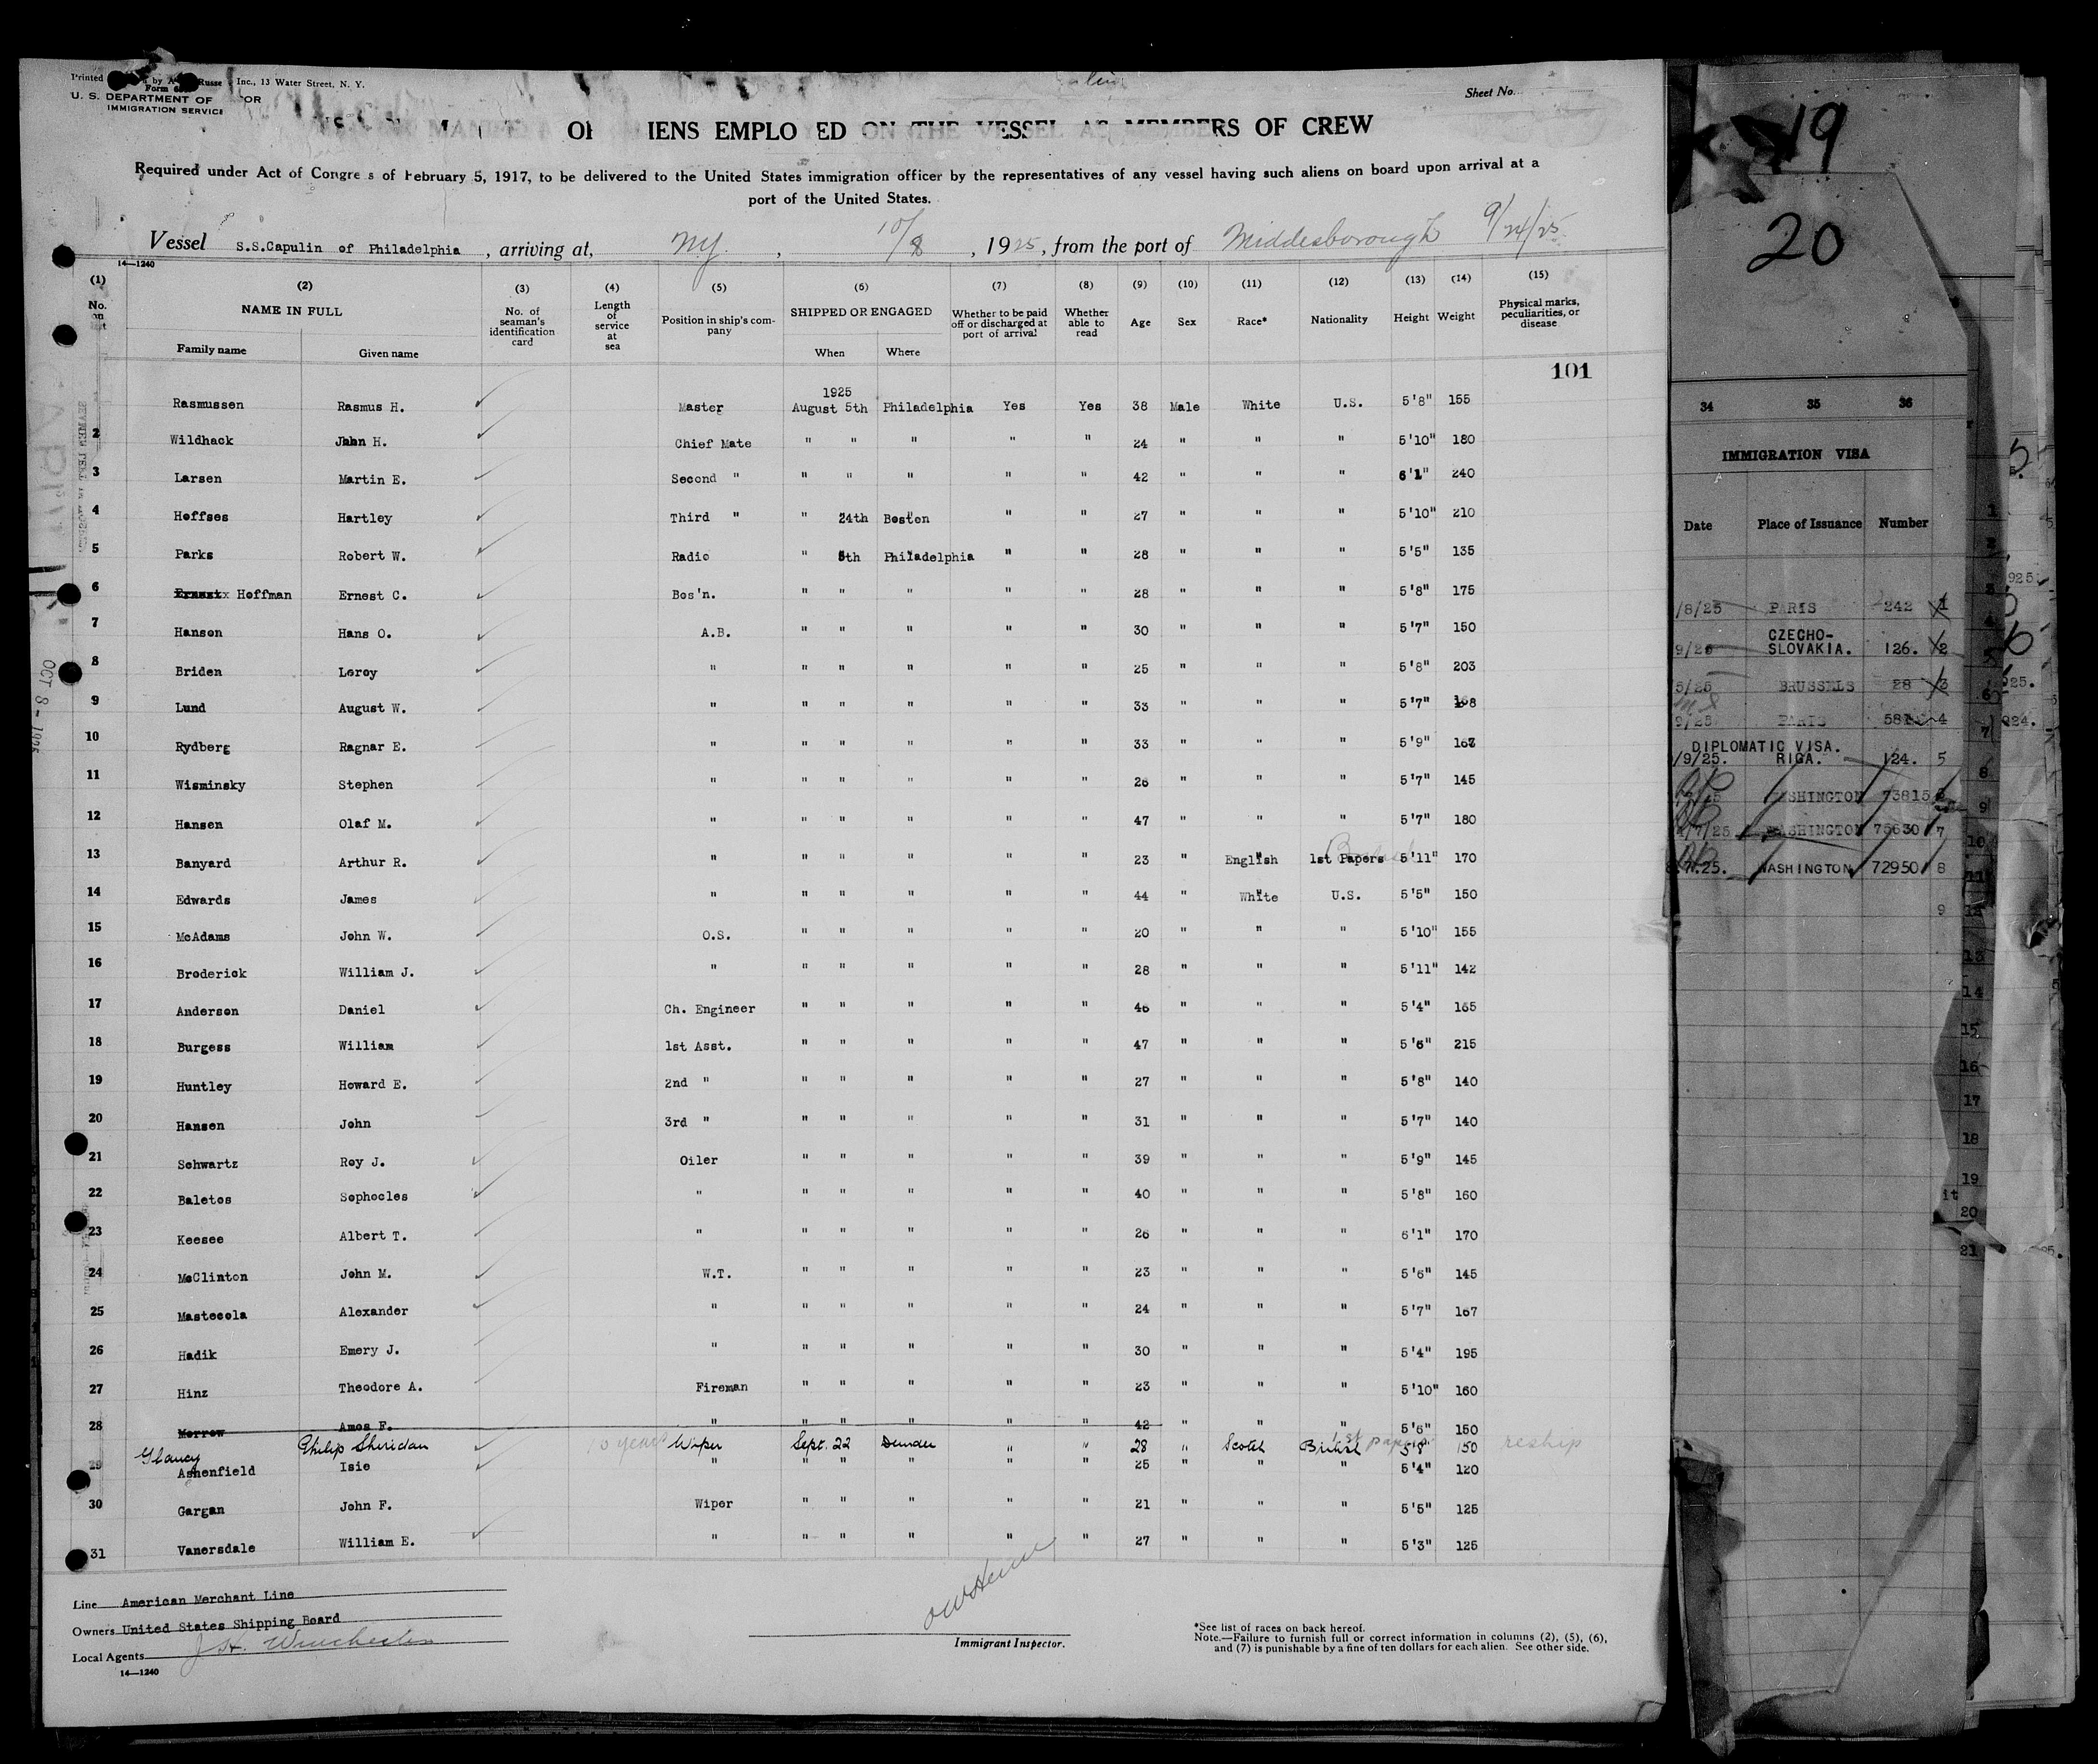 Printed by Inc., 13 Water Street, N. Y.
Form
U. S. DEPARTMENT OF OR
IMMIGRATION SERVICE
Sheet No.
OF IENS EMPLO ED ON THE VESSEL AS MEMBERS OF CREW
Required under Act of Congre s of February 5, 1917, to be delivered to the United States immigration officer by the representatives of any vessel having such aliens on board upon arrival at a
port of the United States.
Vessel S.S.Capulin of Philadelphia, arriving at, NY, 10/8, 1925, from the port of Middlesborough 9/24/25
14—1240
(1) (2) (3) (4) (5) (6) (7) (8) (9) (10) (11) (12) (13) (14) (15)
No. on NAME IN FULL Family name Given name No. of seaman's identification card Length of service at sea Position in ship's company SHIPPED OR ENGAGED When Where Whether to be paid off or discharged at port of arrival Whether able to read Age Sex Race* Nationality Height Weight Physical marks, peculiarities, or disease
101
1925
Rasmussen Rasmus H. Master August 5th Philadelphia Yes Yes 38 Male White U.S. 5'8" 155
2 Wildhack John H. Chief Mate " " " " " 24 " " " 5'10" 180
3 Larsen Martin E. Second " " " " " " 42 " " " 6'1" 240
4 Hoffses Hartley Third " " 24th Boston " " 27 " " " 5'10" 210
5 Parks Robert W. Radio " 5th Philadelphia " " 28 " " " 5'5" 135
6 Ernest Hoffman Ernest C. Bos'n. " " " " " 28 " " " 5'8" 175
7 Hanson Hans O. A.B. " " " " " 30 " " " 5'7" 150
8 Briden Leroy " " " " " " 25 " " " 5'8" 203
9 Lund August W. " " " " " " 33 " " " 5'7"
10 Rydberg Ragnar E. " " " " " " 33 " " " 5'9"
11 Wisminsky Stephen " " " " " " 26 " " " 5'7" 145
12 Hansen Olaf M. " " " " " " 47 " " " 5'7" 180
13 Banyard Arthur R. " " " " " " 23 " English 1st Papers 5'11" 170
14 Edwards James " " " " " " 44 " White U.S. 5'5" 150
15 McAdams John W. O.S. " " " " " 20 " " " 5'10" 155
16 Broderick William J. " " " " " " 28 " " " 5'11" 142
17 Anderson Daniel Ch. Engineer " " " " " 46 " " " 5'4" 165
18 Burgess William 1st Asst. " " " " " 47 " " " 5'6" 215
19 Huntley Howard E. 2nd " " " " " " 27 " " " 5'8" 140
20 Hansen John 3rd " " " " " " 31 " " " 5'7" 140
21 Schwartz Roy J. Oiler " " " " " 39 " " " 5'9" 145
22 Baletos Sophocles " " " " " " 40 " " " 5'8" 160
23 Keesee Albert T. " " " " " " 26 " " " 6'1" 170
24 McClinton John M. W.T. " " " " " 23 " " " 5'6" 145
25 Mastecola Alexander " " " " " " 24 " " " 5'7" 167
26 Hadik Emery J. " " " " " " 30 " " " 5'4" 195
27 Hinz Theodore A. Fireman " " " " " 23 " " " 5'10" 160
28 Morrow Amos F. " " " " " " 42 " " " 5'6" 150
Glancy Philip Sheridan 10 years Wiper Sept. 22 Dundee " " 28 " Scotch British 1st papers 5'8" 150 reship
29 Ashenfield Isie " " " " " " 25 " " " 5'4" 120
30 Gargan John F. Wiper " " " " " 21 " " " 5'5" 125
31 Vanorsdale William E. " " " " " " 27 " " " 5'3" 125
Line American Merchant Line
Owners United States Shipping Board
Local Agents J.H. Winchester
14—1240
Immigrant Inspector.
*See list of races on back hereof.
Note.—Failure to furnish full or correct information in columns (2), (5), (6),
and (7) is punishable by a fine of ten dollars for each alien. See other side.
OCT 8 - 1925
19
20
34 35 36
IMMIGRATION VISA
Date Place of Issuance Number
/8/25 PARIS 242 1
9/25 CZECHO-
SLOVAKIA. 126. 2
5/25 BRUSSELS 28 3
9/25 PARIS 4
DIPLOMATIC VISA.
/9/25. RIGA. 124. 5
WASHINGTON 73815
/7/25 WASHINGTON 75630 7
.7.25. WASHINGTON 72950 8
9
13
14
15
16
17
18
19
20
21